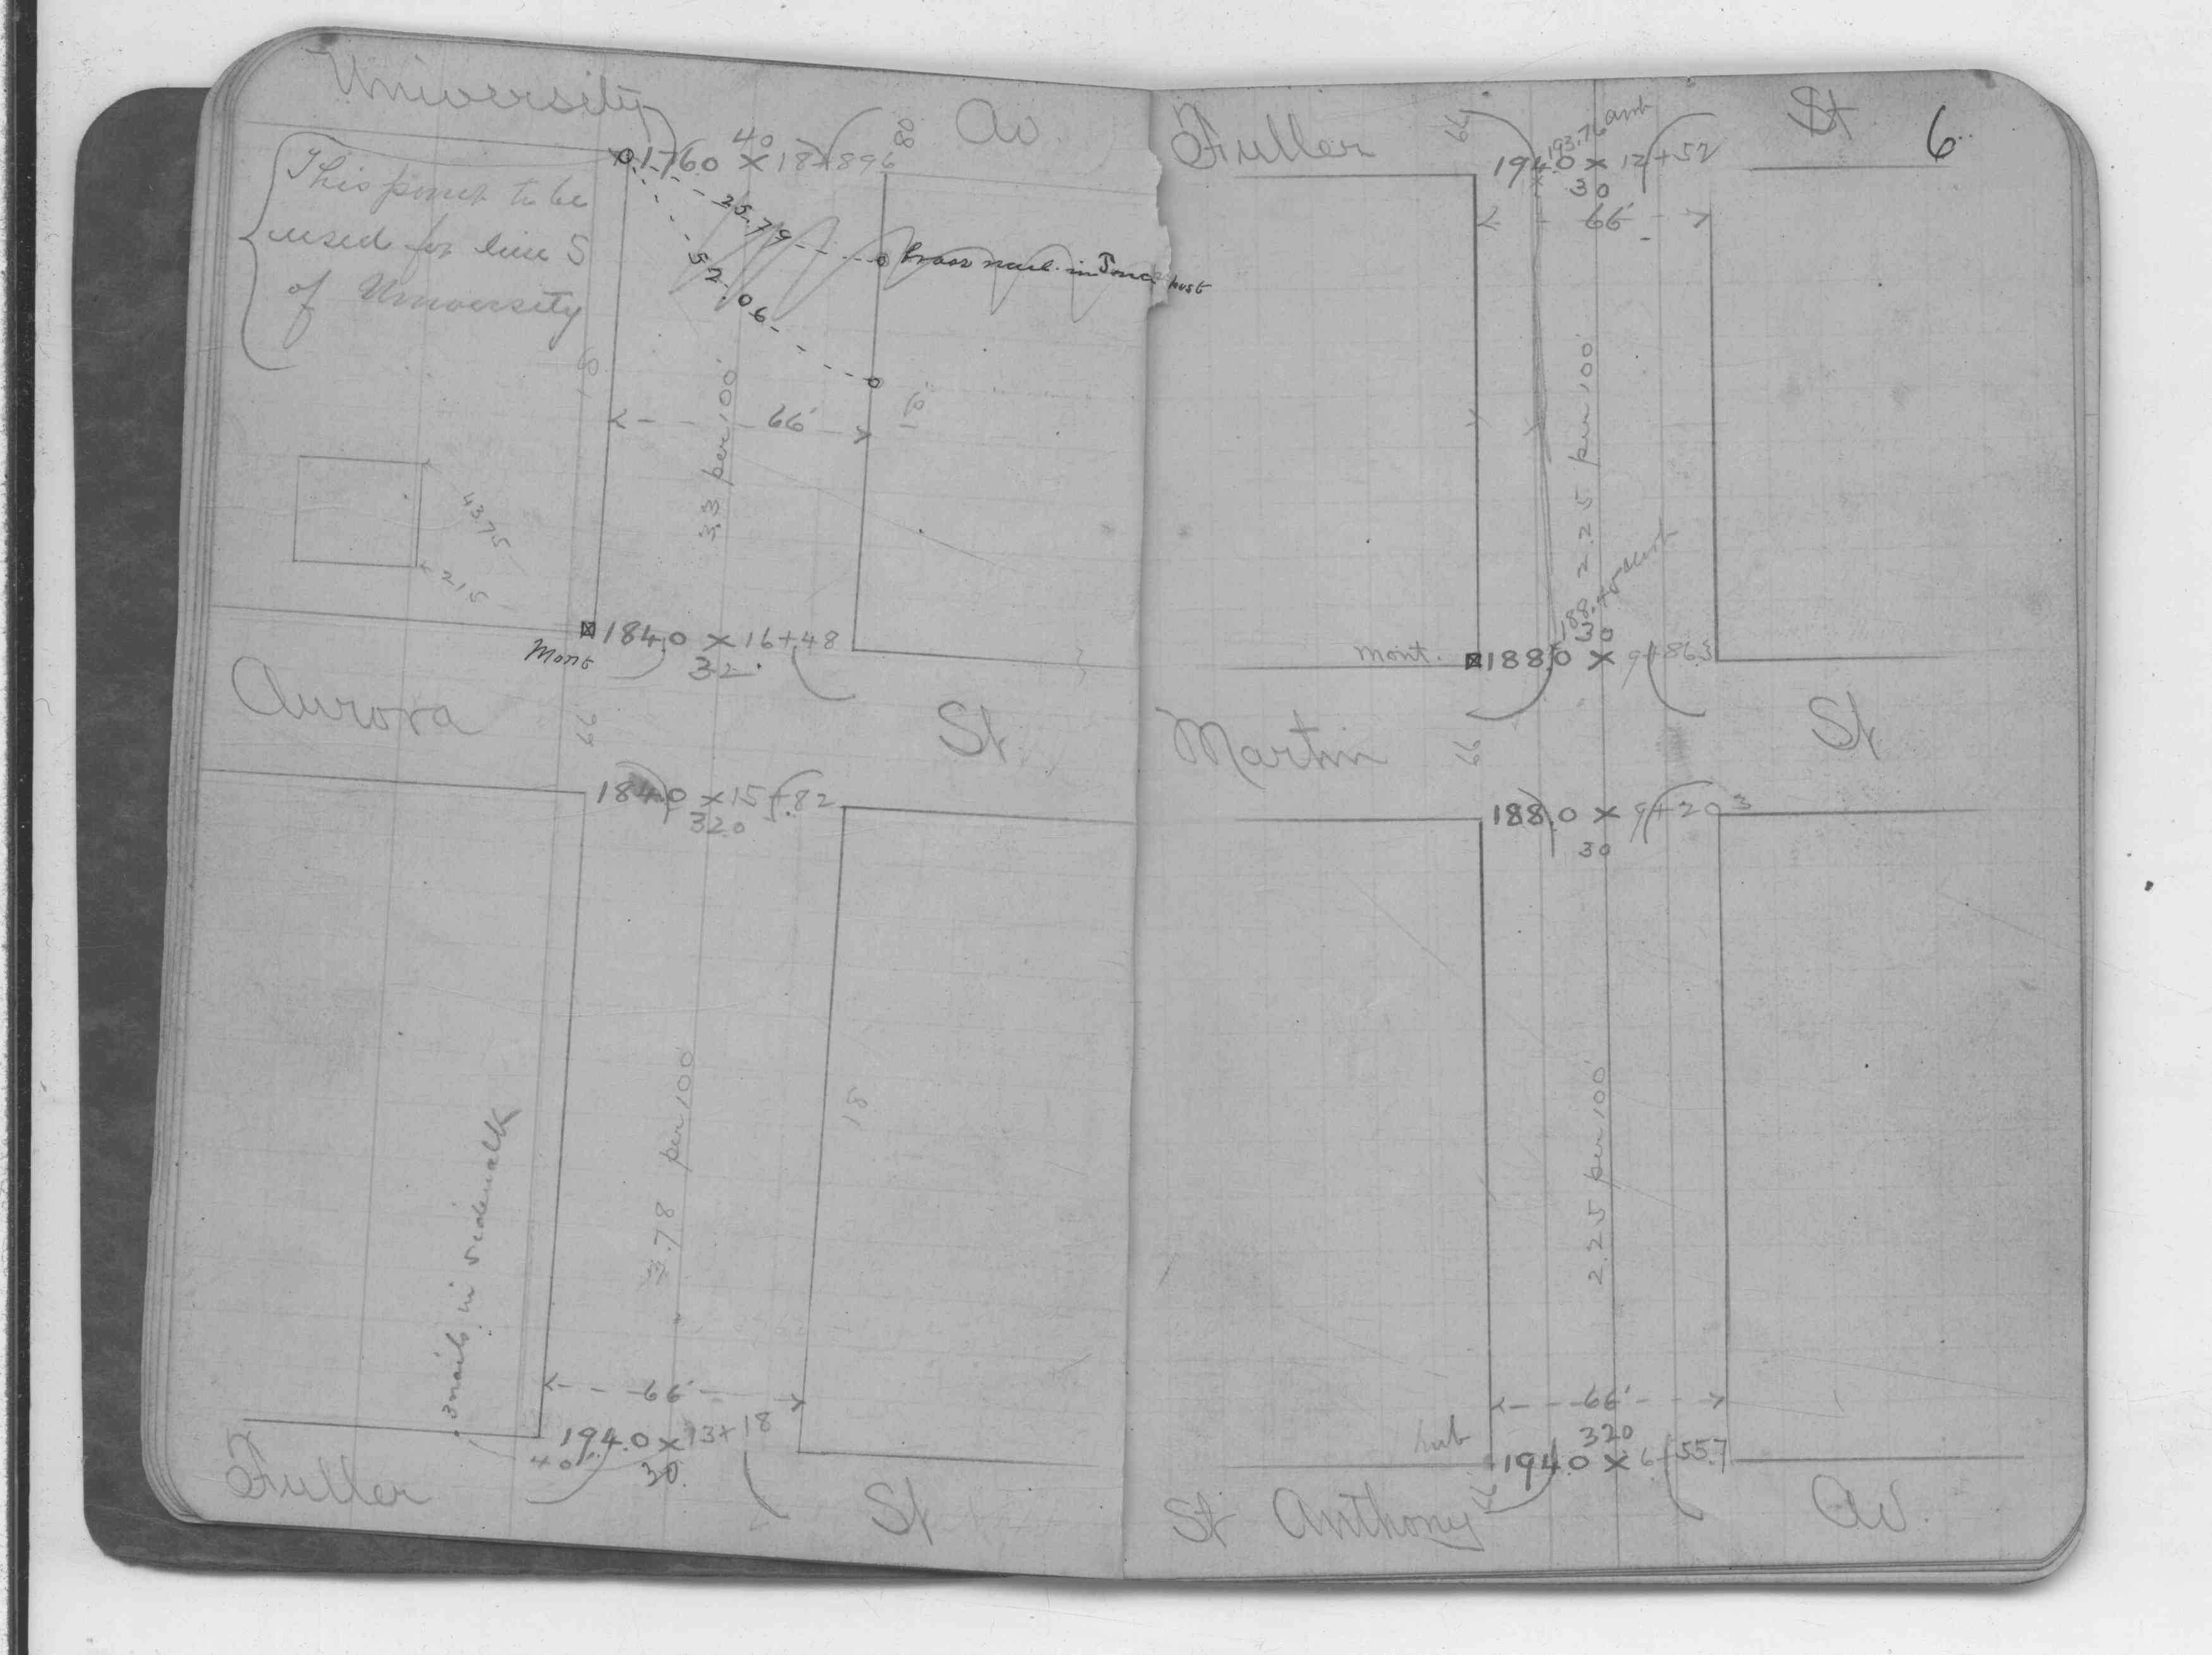 University Av.
80
40
176.0 x 18+89.6
This point to be
used for line S
of University
25.79
brass nail in Fence post
52.06
66'
3.3 per 100'
43.75
21.5
184.0 x 16+48
Mont
32
Aurora St.
66
184.0 x 15+82
32.0
3.78 per 100'
18
3 nails in sidewalk
66'
194.0 x 13+18
40
30
Fuller St
6
Fuller St
66
193.76
194.0 x 12+52
30
66'
2.25 per 100'
188.
30
mont. 188.0 x 9+86.3
Martin St
66
188.0 x 9+20.3
30
2.25 per 100'
66'
320
194.0 x 6+55.7
66
St Anthony Av.